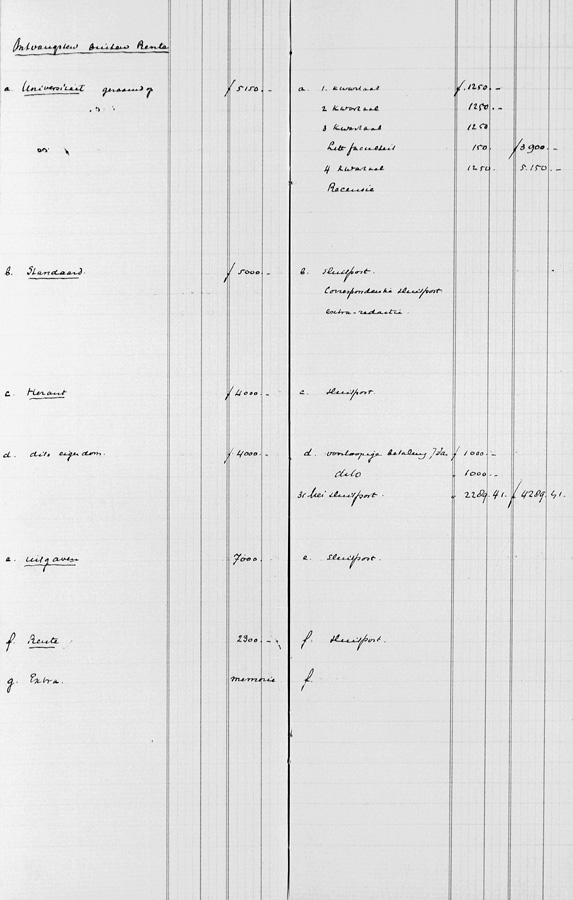 Ontvangsten buiten Rente
a. Universiteit geraamd op ƒ 5150.–
a. 1. Kwartaal ƒ 1250.–
2 Kwartaal 1250.–
3 Kwartaal 1250
Litt faculteit 150. ƒ 3900.–
4 Kwartaal 1250. 5.150.–
Recensie
b. Standaard. ƒ 5000.–
b. Sluitpost.
Correspondentie Sluitpost
extra-redactie.
c. Heraut ƒ 4000.–
c. Sluitpost.
d. dito eigendom. ƒ 4000.–
d. voorloopige betaling ƒ 1000.–
dito 1000.–
31 Mei Sluitpost. 2289.41. ƒ 4289.41.
e. uitgaven 7000.–
e. Sluitpost.
f. Rente 2300.–
f. Sluitpost.
g. Extra. memorie
f.